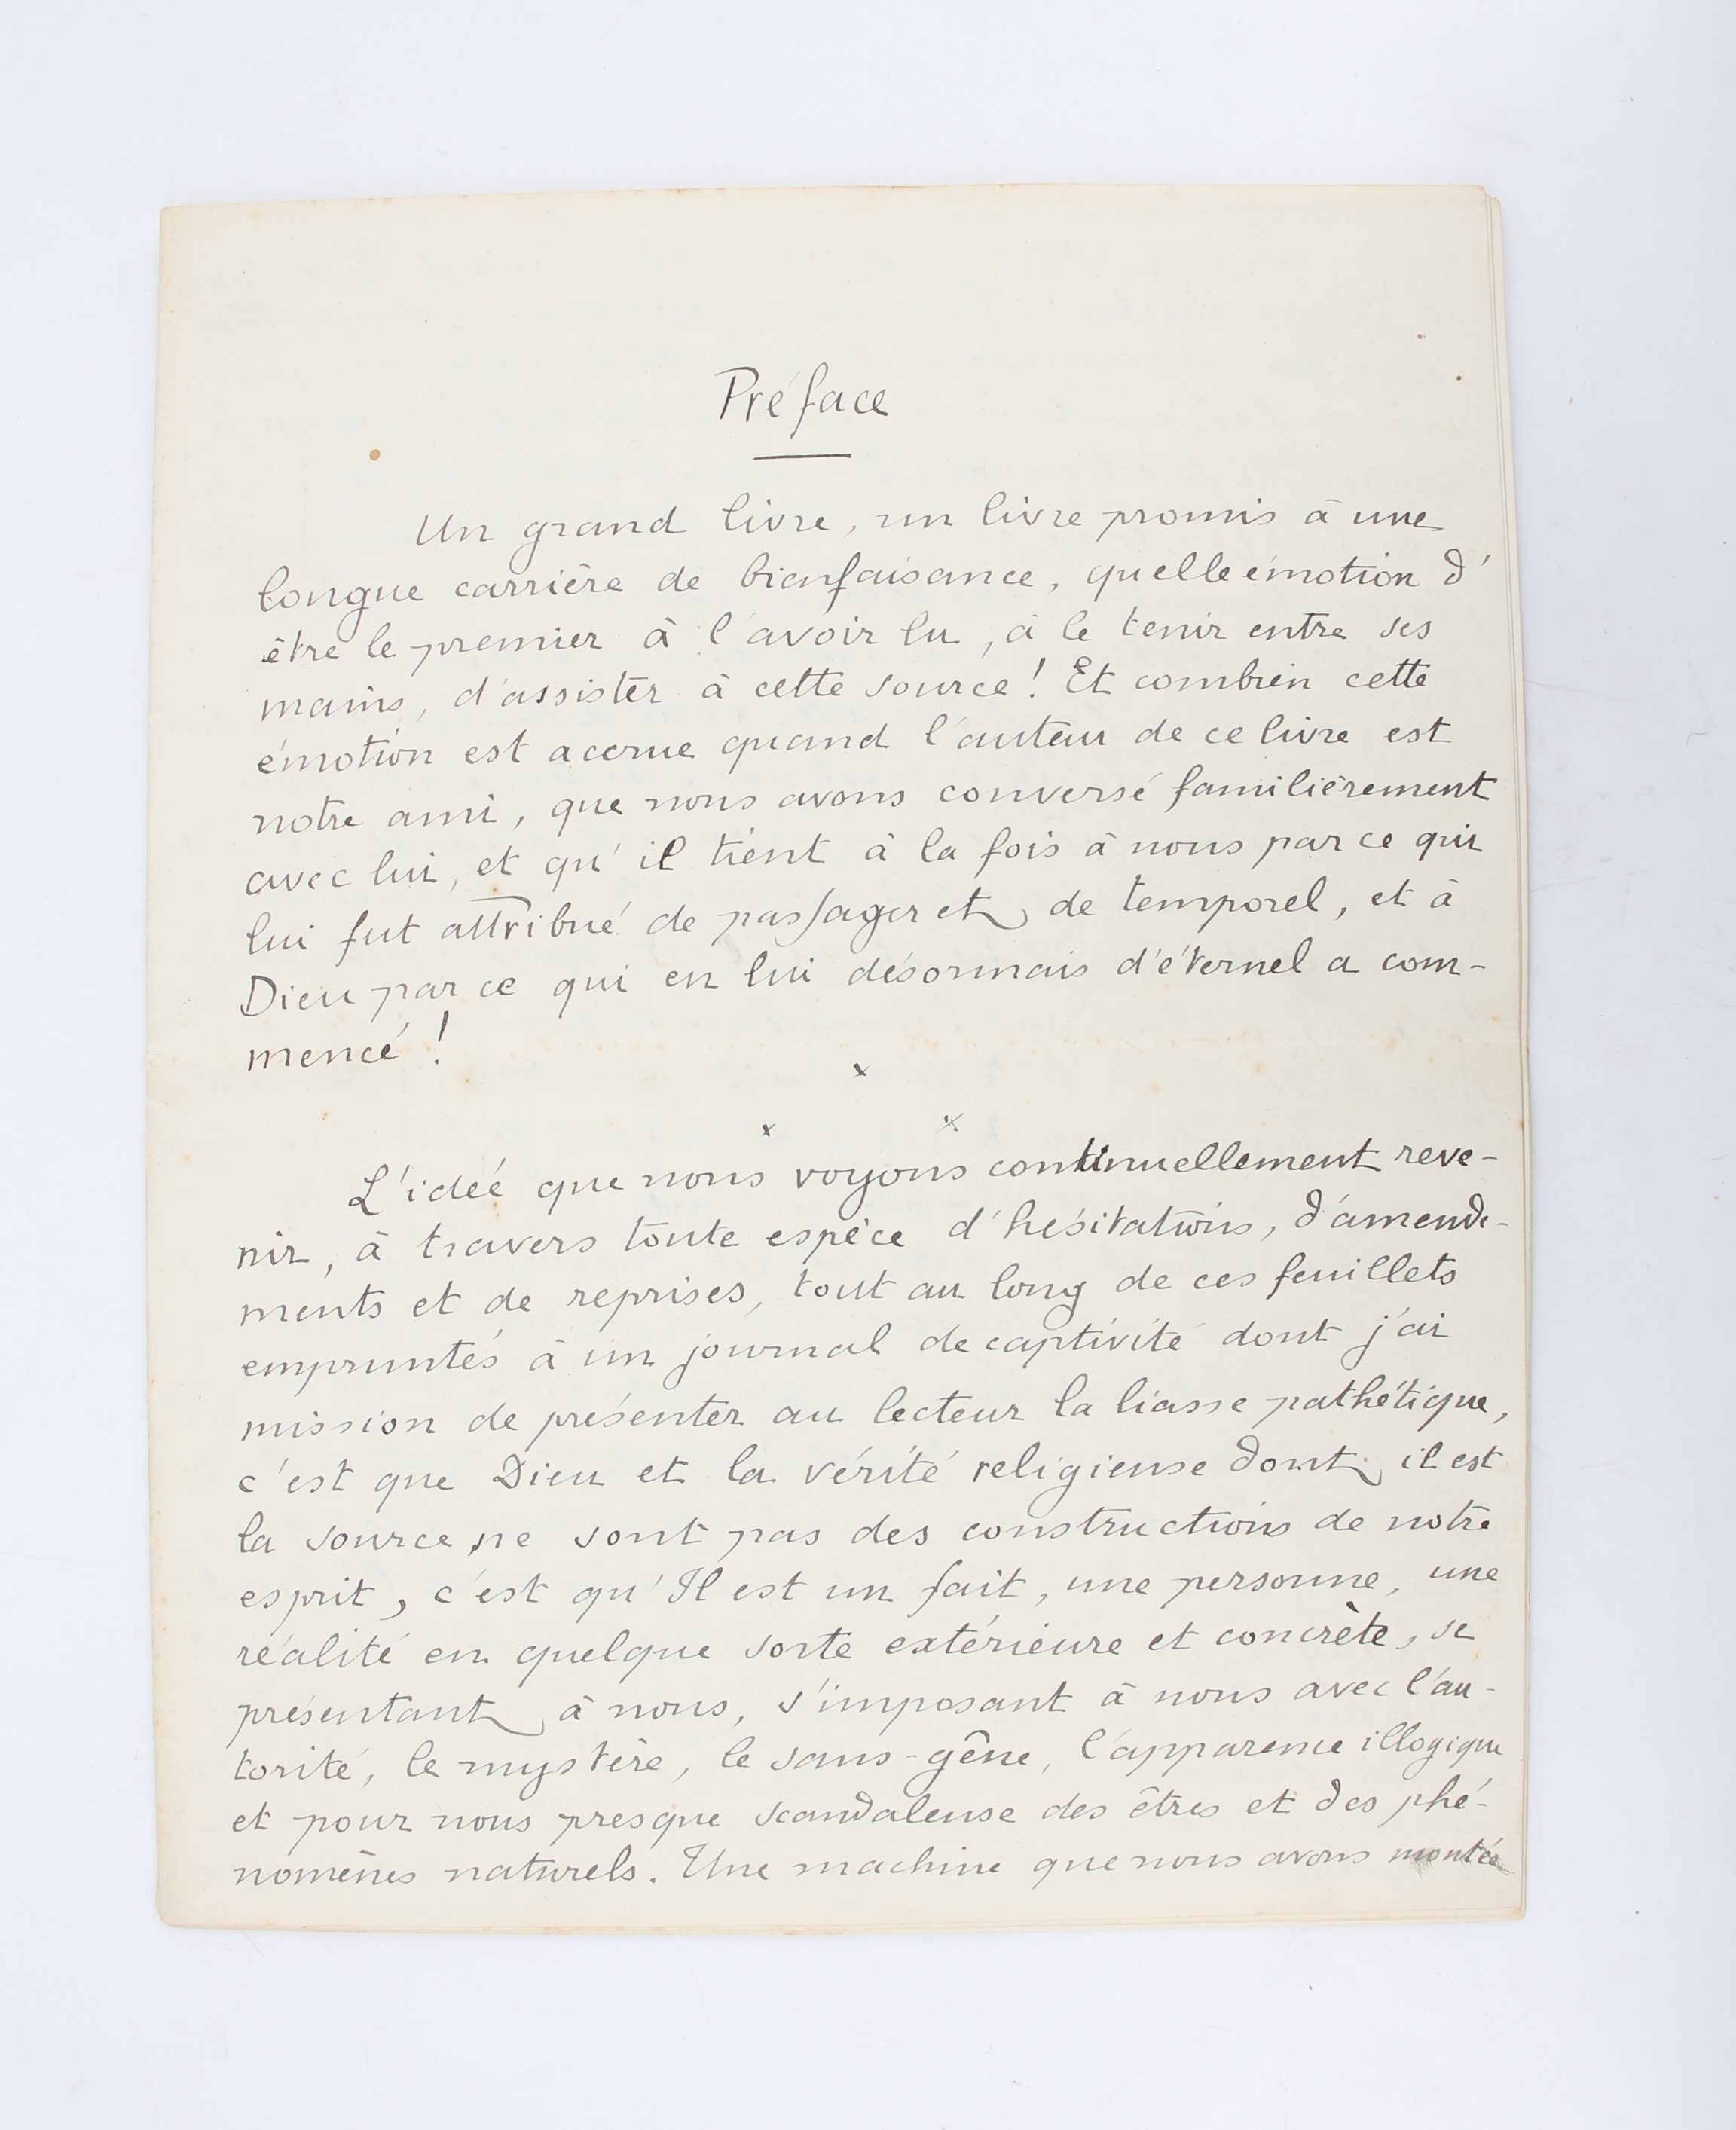 Préface
Un grand livre, un livre promis à une
longue carrière de bienfaisance, quelle émotion d'
être le premier à l'avoir lu, à le tenir entre ses
mains, d'assister à cette source ! Et combien cette
émotion est accrue quand l'auteur de ce livre est
notre ami, que nous avons conversé familièrement
avec lui, et qu'il tient à la fois à nous par ce qui
lui fut attribué de passager et de temporel, et à
Dieu par ce qui en lui désormais d'éternel a com-
mencé !
x
x x
L'idée que nous voyons continuellement reve-
nir, à travers toute espèce d'hésitations, d'amende-
ments et de reprises, tout au long de ces feuillets
empruntés à un journal de captivité dont j'ai
mission de présenter au lecteur la liasse pathétique,
c'est que Dieu et la vérité religieuse dont il est
la source, ne sont pas des constructions de notre
esprit, c'est qu'Il est un fait, une personne, une
réalité en quelque sorte extérieure et concrète, se
présentant à nous, s'imposant à nous avec l'au-
torité, le mystère, le sans-gêne, l'apparence illogique
et pour nous presque scandaleuse des êtres et des phé-
nomènes naturels. Une machine que nous avons montée